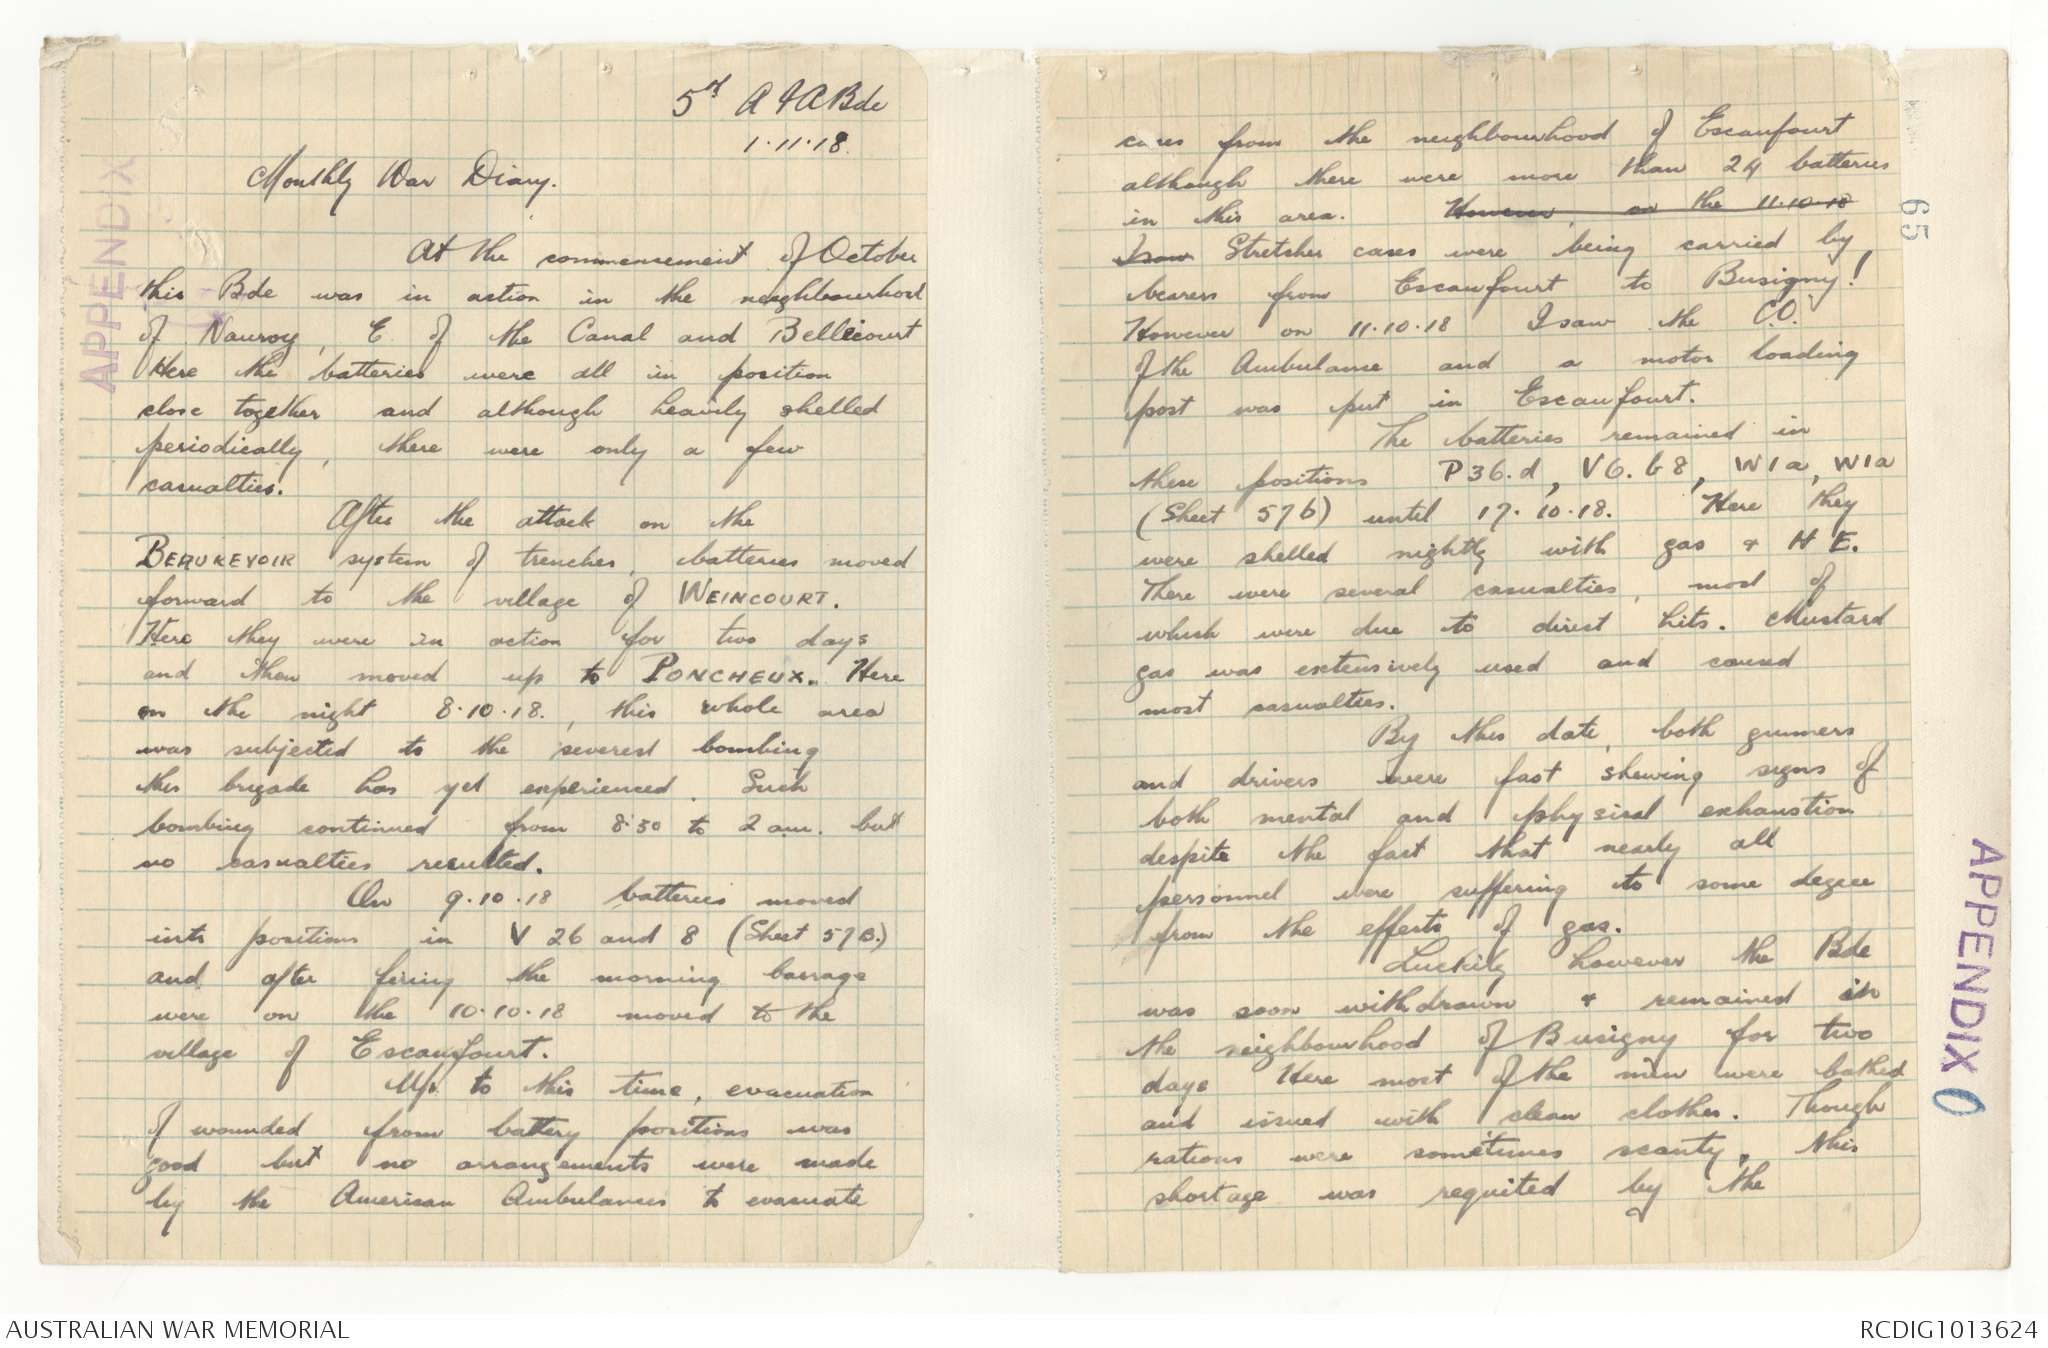 APPENDIX
5th A F A Bde
1.11.18.
Monthly War Diary.
At the commencement of October
this Bde was in action in the neighbourhood
of Nauroy, E. of the Canal and Bellicourt
Here the batteries were all in position
close together and although heavily shelled
periodically, there were only a few
casualties.
After the attack on the
BEAUREVOIR system of trenches, batteries moved
forward to the village of WEINCOURT.
Here they were in action for two days
and then moved up to PONCHEUX. Here
on the night 8.10.18., this whole area
was subjected to the severest bombing
this brigade has yet experienced. Such
bombing continued from 8.30 to 2 am. but
no casualties resulted.
On 9.10.18 batteries moved
into positions in V 26 and 8 (Sheet 57B.)
and after firing the morning barrage
were on the 10.10.18 moved to the
village of Escaufourt.
Up to this time, evacuation
of wounded from battery positions was
good but no arrangements were made
by the American Ambulances to evacuate
cases from the neighbourhood of Escaufourt
although there were more than 24 batteries
in this area. However, on the 11.10.18
I saw Stretcher cases were being carried by
bearers from Escaufourt to Busigny!
However on 11.10.18 I saw the C.O.
of the Ambulance and a motor loading
post was put in Escaufourt.
The batteries remained in
these positions P36.d, V6.b8, W1a, W1a
(Sheet 57b) until 17.10.18. Here they
were shelled nightly with gas & H E.
There were several casualties, most of
which were due to direct hits. Mustard
gas was extensively used and caused
most casualties.
By this date, both gunners
and drivers were fast shewing signs of
both mental and physical exhaustion
despite the fact that nearly all
personnel were suffering to some degree
from the effects of gas.
Luckily however the Bde
was soon withdrawn & remained in
the neighbourhood of Busigny for two
days Here most of the men were bathed
and issued with clean clothes. Though
rations were sometimes scanty, this
shortage was requited by the
65
APPENDIX O
AUSTRALIAN WAR MEMORIAL
RCDIG1013624